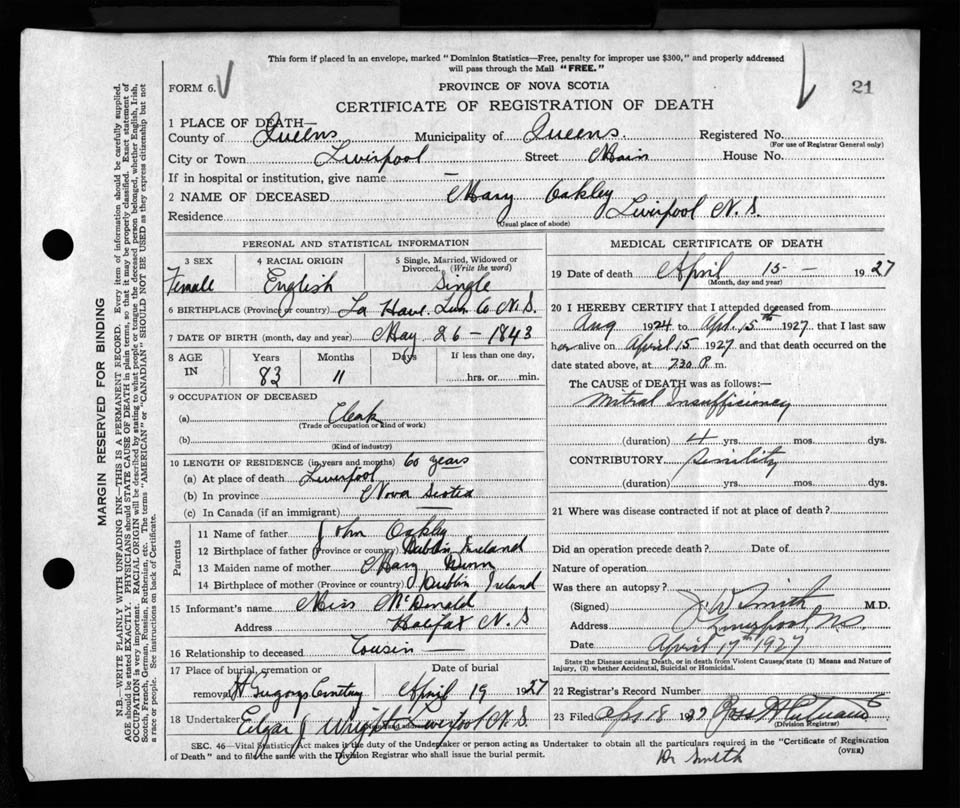 This form if placed in an envelope, marked "Dominion Statistics—Free, penalty for improper use $300," and properly addressed
will pass through the Mail "FREE."
FORM 6.
PROVINCE OF NOVA SCOTIA
21
CERTIFICATE OF REGISTRATION OF DEATH
1 PLACE OF DEATH—
County of Queens Municipality of Queens Registered No.
(For use of Registrar General only)
City or Town Liverpool Street Main House No.
If in hospital or institution, give name —
2 NAME OF DECEASED Mary Oakley
Residence Liverpool N.S.
(Usual place of abode)
PERSONAL AND STATISTICAL INFORMATION
3 SEX Female
4 RACIAL ORIGIN English
5 Single, Married, Widowed or Divorced. (Write the word) Single
6 BIRTHPLACE (Province or country) La Have Lun. Co N.S.
7 DATE OF BIRTH (month, day and year) May 26 — 1843
8 AGE IN Years 83 Months 11 Days If less than one day, hrs. or min.
9 OCCUPATION OF DECEASED
(a) Clerk
(Trade or occupation or kind of work)
(b)
(Kind of industry)
10 LENGTH OF RESIDENCE (in years and months) 60 years
(a) At place of death Liverpool
(b) In province Nova Scotia
(c) In Canada (if an immigrant) —
Parents
11 Name of father John Oakley
12 Birthplace of father (Province or country) Dublin Ireland
13 Maiden name of mother Mary
14 Birthplace of mother (Province or country) Dublin Ireland
15 Informant's name Miss McDonald
Address Halifax N.S
16 Relationship to deceased Cousin —
17 Place of burial, cremation or removal Cemetery Date of burial April 19 1927
18 Undertaker Edgar J Wright Liverpool N.S.
MEDICAL CERTIFICATE OF DEATH
19 Date of death April 15 — 1927
(Month, day and year)
20 I HEREBY CERTIFY that I attended deceased from
Aug 1924 to Apr. 15th 1927, that I last saw
her alive on April 15 1927 and that death occurred on the
date stated above, at 7.30 P. m.
The CAUSE OF DEATH was as follows:—
Mitral Insufficiency
(duration) 4 yrs. mos. dys.
CONTRIBUTORY Senility
(duration) yrs. mos. dys.
21 Where was disease contracted if not at place of death?
Did an operation precede death? Date of
Nature of operation
Was there an autopsy?
(Signed) J W Smith M.D.
Address Liverpool N.S.
Date April 17th 1927
State the Disease causing Death, or in death from Violent Causes, state (1) Means and Nature of
Injury, (2) whether Accidental, Suicidal or Homicidal.
22 Registrar's Record Number
23 Filed Apr 18 1927
(Division Registrar)
SEC. 46—Vital Statistics Act makes it the duty of the Undertaker or person acting as Undertaker to obtain all the particulars required in the "Certificate of Registration
of Death" and to file the same with the Division Registrar who shall issue the burial permit.
(OVER)
Dr Smith
MARGIN RESERVED FOR BINDING
N.B.—WRITE PLAINLY WITH UNFADING INK—THIS IS A PERMANENT RECORD. Every item of information should be carefully supplied.
AGE should be stated EXACTLY. PHYSICIANS should STATE CAUSE OF DEATH in plain terms, so that it may be properly classified. Exact statement of
OCCUPATION is very important. RACIAL ORIGIN will be described by stating to what people or tongue the deceased person belonged, whether English, Irish,
Scotch, French, German, Russian, Ruthenian, etc. The terms "AMERICAN" or "CANADIAN" SHOULD NOT BE USED as they express citizenship but not
a race or people. See instructions on back of Certificate.